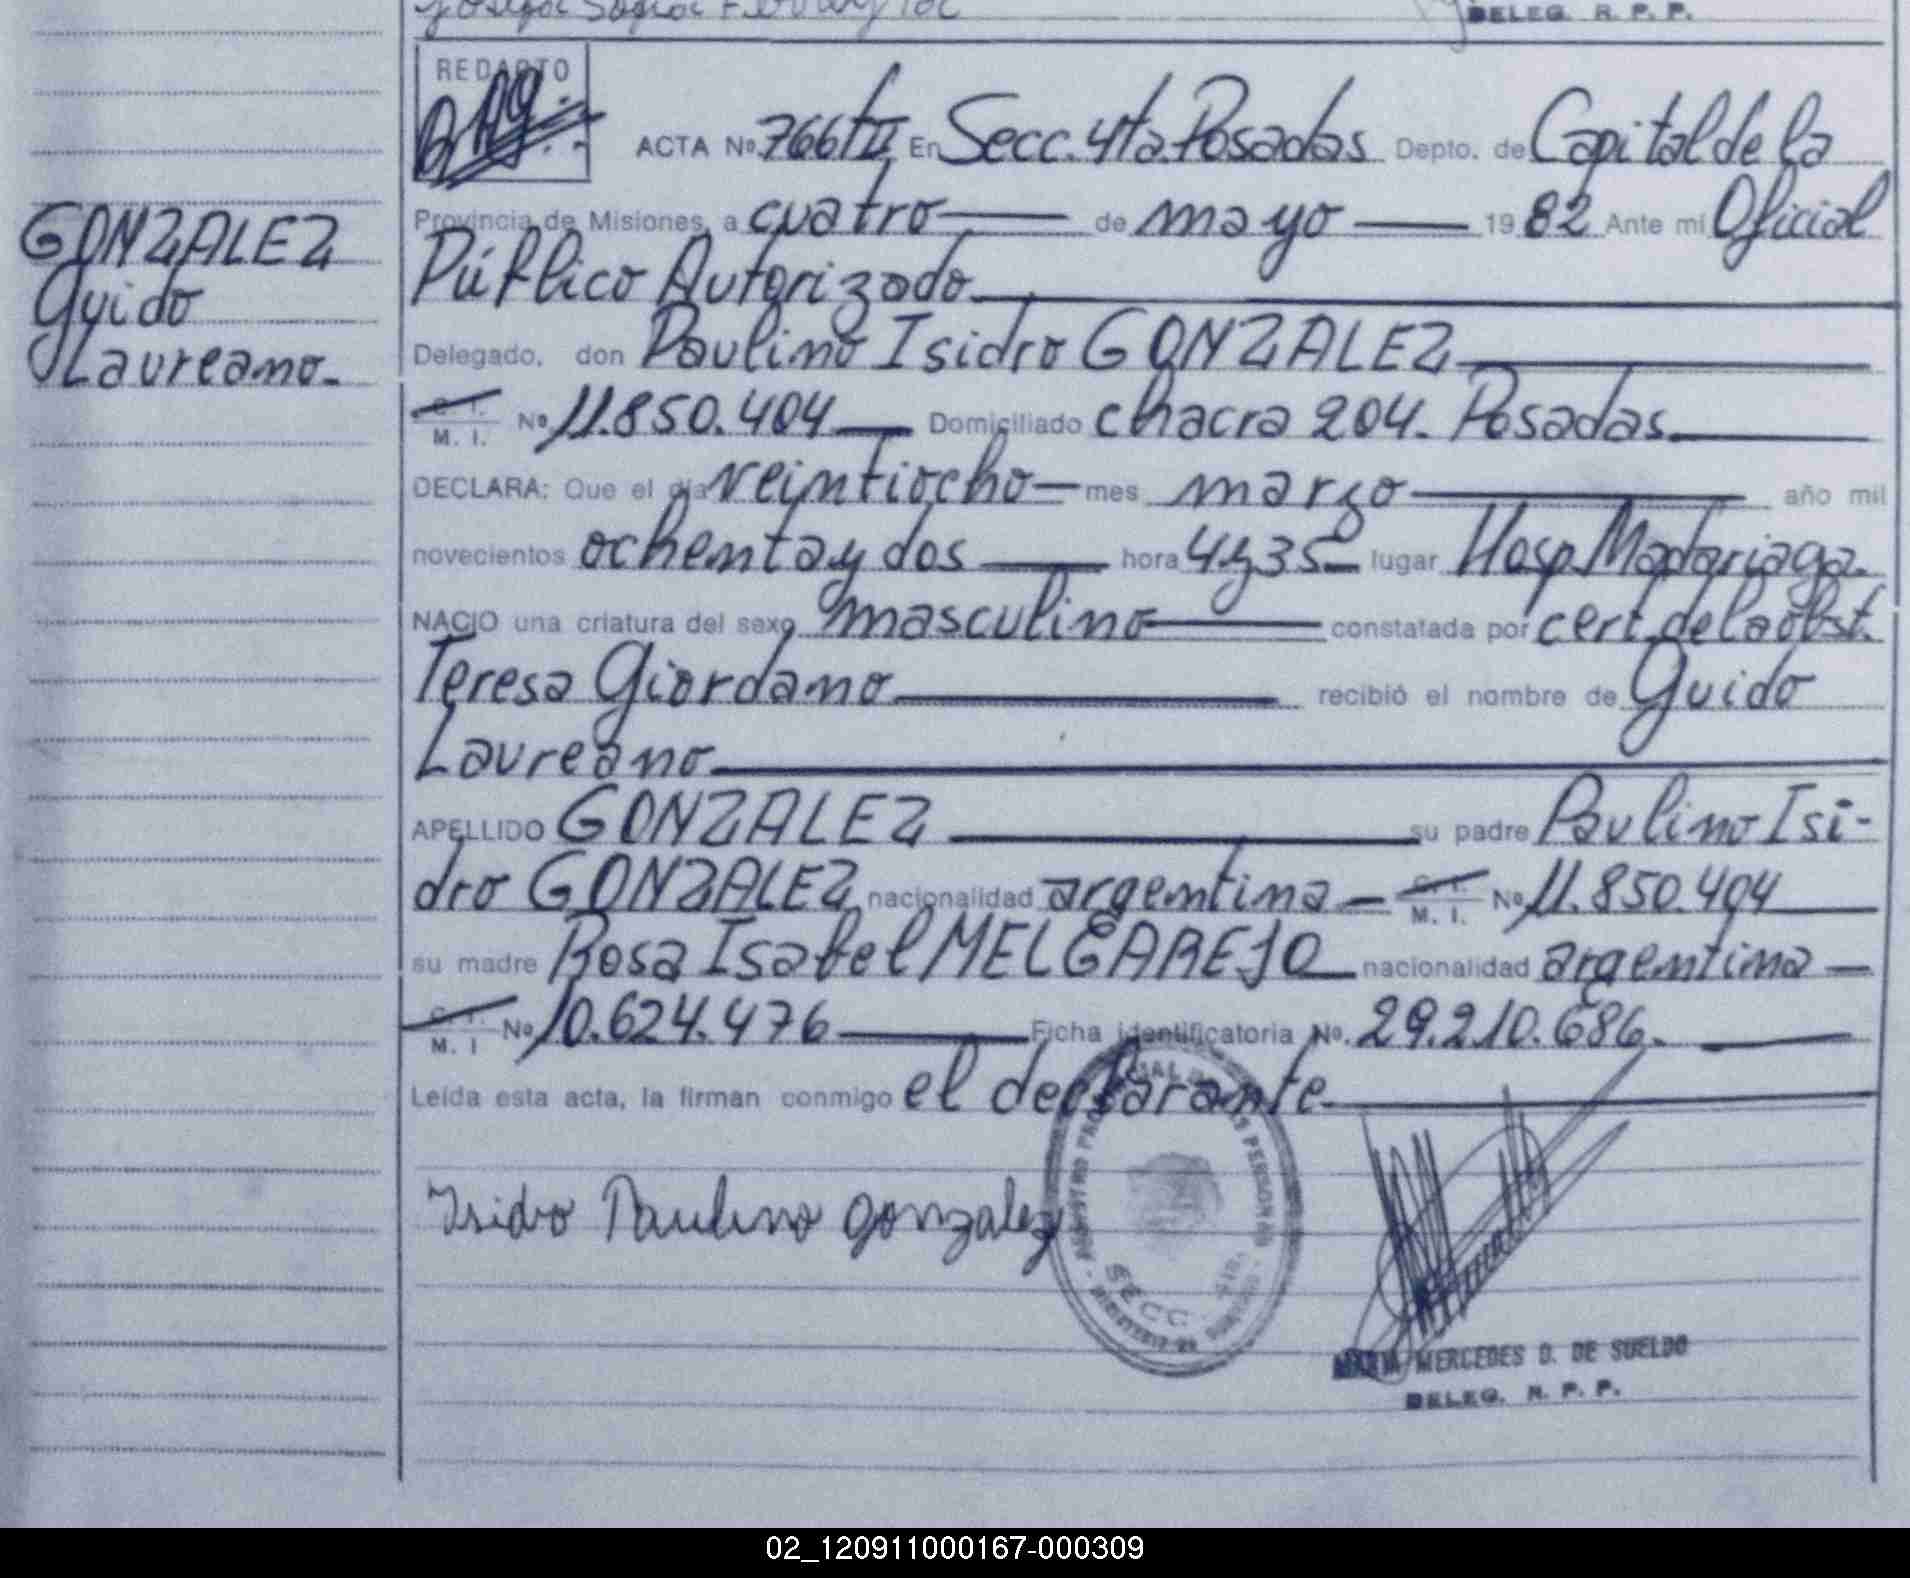 DELEG. R. P. P.
REDACTO
ACTA No. 766 t/II En Secc. 4ta. Posadas Depto. de Capital de la
GONZALEZ
Guido
Laureano.
Provincia de Misiones, a cuatro de mayo 1982 Ante mí Oficial
Público Autorizado.
Delegado, don Paulino Isidro GONZALEZ
C. I. M. I. No. 11.850.404 Domiciliado chacra 204. Posadas.
DECLARA: Que el día veintiocho mes marzo año mil
novecientos ochenta y dos hora 4 y 35 lugar Hosp. Madariaga.
NACIO una criatura del sexo masculino constatada por cert. de la obst.
Teresa Giordano recibió el nombre de Guido
Laureano.
APELLIDO GONZALEZ su padre Paulino Isi-
dro GONZALEZ nacionalidad argentina C. I. M. I. No. 11.850.404
su madre Rosa Isabel MELGAREJO nacionalidad argentina
C. I. M. I No. 10.624.476 Ficha identificatoria No. 29.210.686.
Leída esta acta, la firman conmigo el declarante.
Isidro Paulino Gonzalez
SECC.
MARIA MERCEDES D. DE SUELDO
DELEG. R. P. P.
02_120911000167-000309